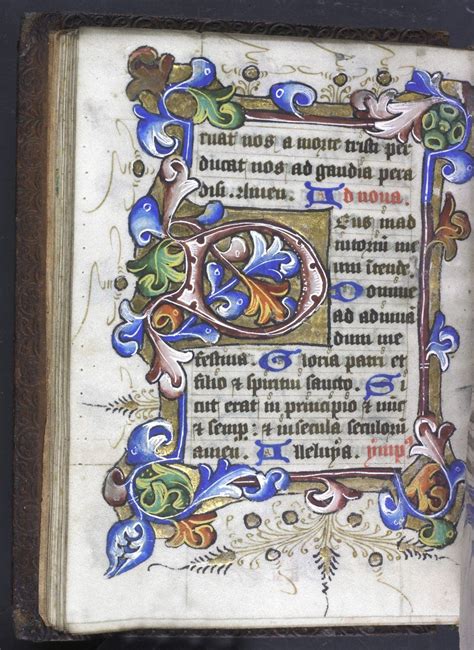 ruat nos a morte tristi per
ducat nos ad gaudia para
disi. Amen. Ad nona.
Deus in ad
iutoriū me
um ītende.
Domine
ad adiuuā
dum me
festina. Gloria patri et
filio & spiritui sancto. Si
cut erat in principio & nūc
& semp: & in secula seculorū
amen. Alleluya. ymp⁹